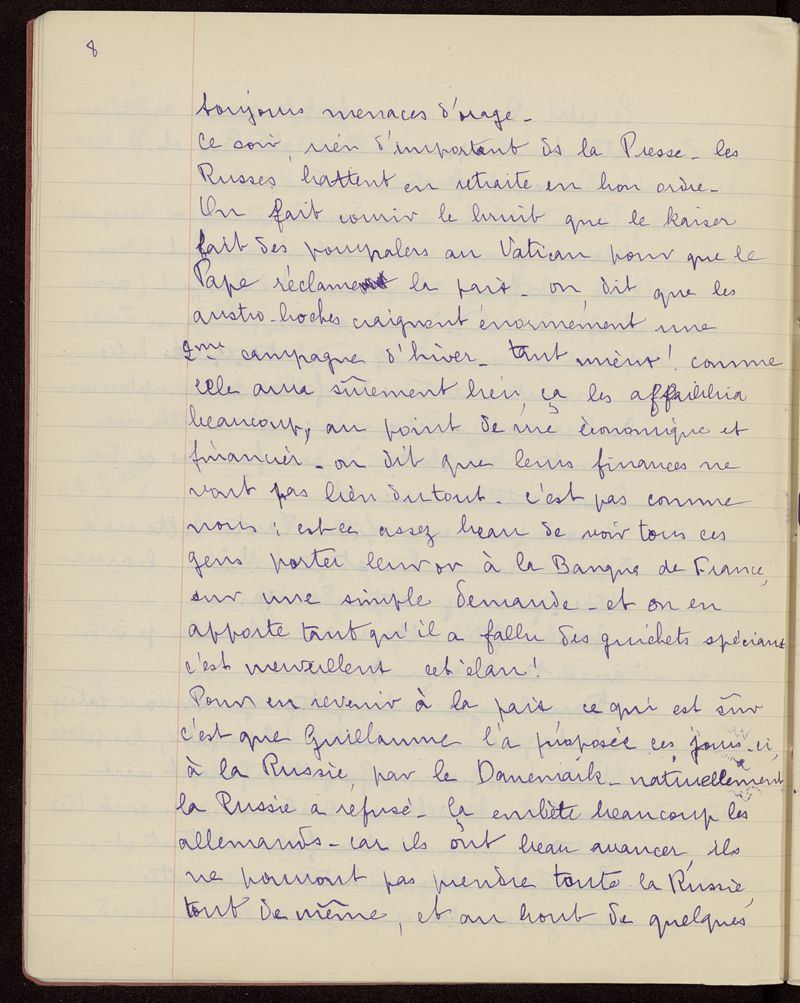 8
toujours menaces d'orage -
Ce soir, rien d'important ds la Presse - les
Russes battent en retraite en bon ordre -
On fait courir le bruit que le kaiser
fait des pourpalers au Vatican pour que le
Pape réclame la paix - on dit que les
austro-boches craignent énormément une
2me campagne d'hiver - tant mieux! comme
elle aura sûrement lieu, ça les affaiblira
beaucoup, au point de vue économique et
financier - on dit que leurs finances ne
vont pas bien du tout - c'est pas comme
nous : est-ce assez beau de voir tous ces
gens porter leur or à la Banque de France,
sur une simple demande - et on en
apporte tant qu'il a fallu des guichets spéciaux
c'est merveilleux cet élan!
Pour en revenir à la paix ce qui est sûr
c'est que Guillaume l'a proposée ces jours-ci,
à la Russie, par le Danemark - naturellement
la Russie a refusé - ça embête beaucoup les
allemands - car ils ont beau avancer, ils
ne pourront pas prendre toute la Russie,
tout de même, et au bout de quelques